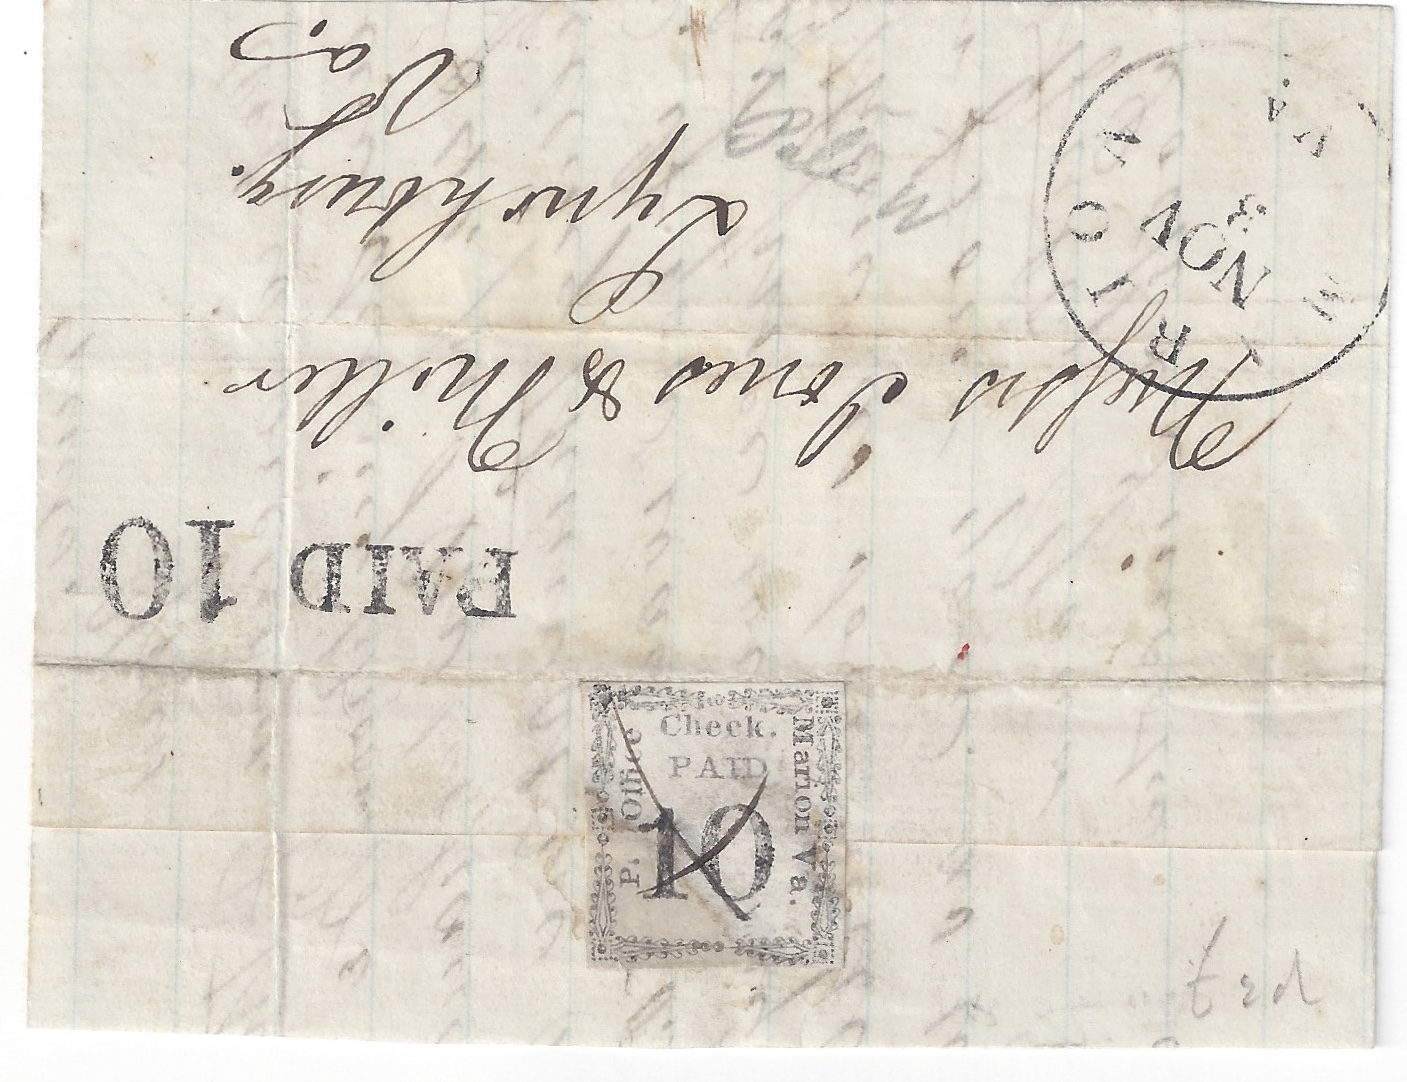 Check.
PAID
10
P. Office
Marion Va.
PAID 10
Messrs Jones & Miller
Lynchburg.
Va.
MARION
VA.
NOV
3